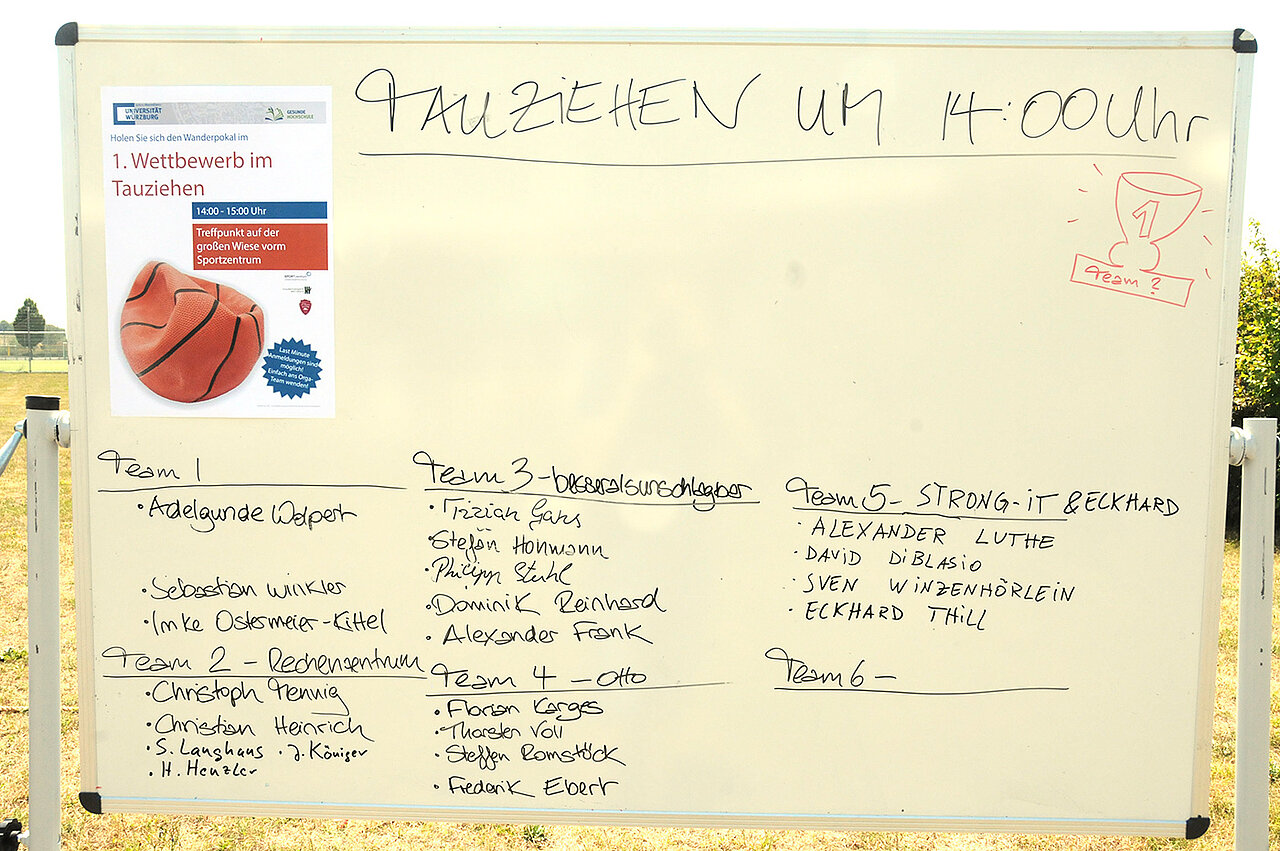 TAUZiEHEN UM 14:00 Uhr
UNIVERSITÄT
WÜRZBURG
GESUNDE
HOCHSCHULE
Holen Sie sich den Wanderpokal im
1. Wettbewerb im
Tauziehen
14:00 - 15:00 Uhr
Treffpunkt auf der
großen Wiese vorm
Sportzentrum
Last Minute
Anmeldungen sind
möglich!
Einfach ans Orga-
Team wenden!
1
Team ?
Team 1
• Adelgunde Wolpert
• Sebastian Winkler
• Imke Ostermeier-Kittel
Team 2 - Rechenzentrum
• Christoph
• Christian Heinrich
• S. Langhans • J. Königer
• H. Henzler
Team 3 - besseralsunschlagbar
• Tizian Gans
• Stefan Hohmann
• Philipp Stuhl
• Dominik Reinhard
• Alexander Frank
Team 4 - Otto
• Florian Karges
• Thorsten Voll
• Steffen Romstöck
• Frederik Ebert
Team 5 - STRONG-iT & ECKHARD
• ALEXANDER LUTHE
• DAViD DiBLASiO
• SVEN WiNZENHÖRLEiN
• ECKHARD THiLL
Team 6 -